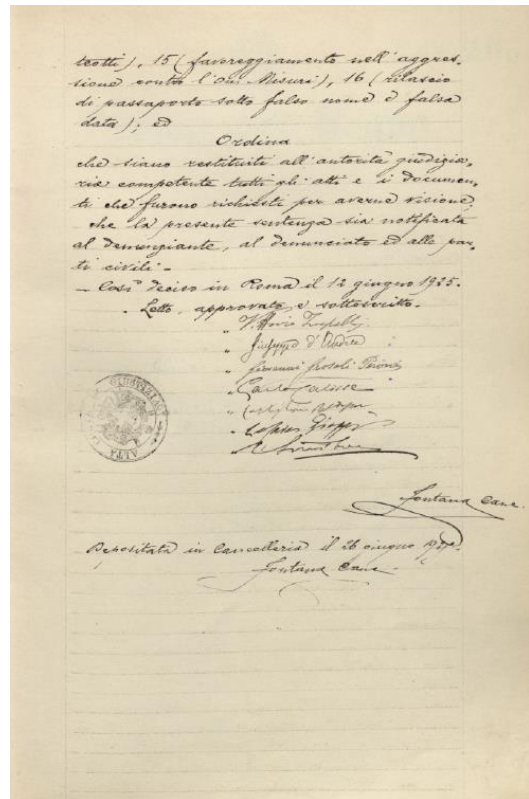 teotti), 15 (favoreggiamento nell'aggres-
sione contro l'On. Misuri), 16 (rilascio
di passaporto sotto falso nome e falsa
data); ed
Ordina
che siano restituiti all'autorità giudizia-
ria competente tutti gli atti e i documen-
ti che furono richiesti per averne visione,
che la presente sentenza sia notificata
al denunziante, al denunciato ed alle par-
ti civili.-
- Così deciso in Roma il 12 giugno 1925.
- Letto, approvato e sottoscritto.
" Vittorio Zupelli
" Giuseppe d'Andrea
" Giovanni Grosoli Pironi
"
"
"
Fontana Canc.
Depositata in Cancelleria il 26 giugno
Fontana Canc.-
ALTA